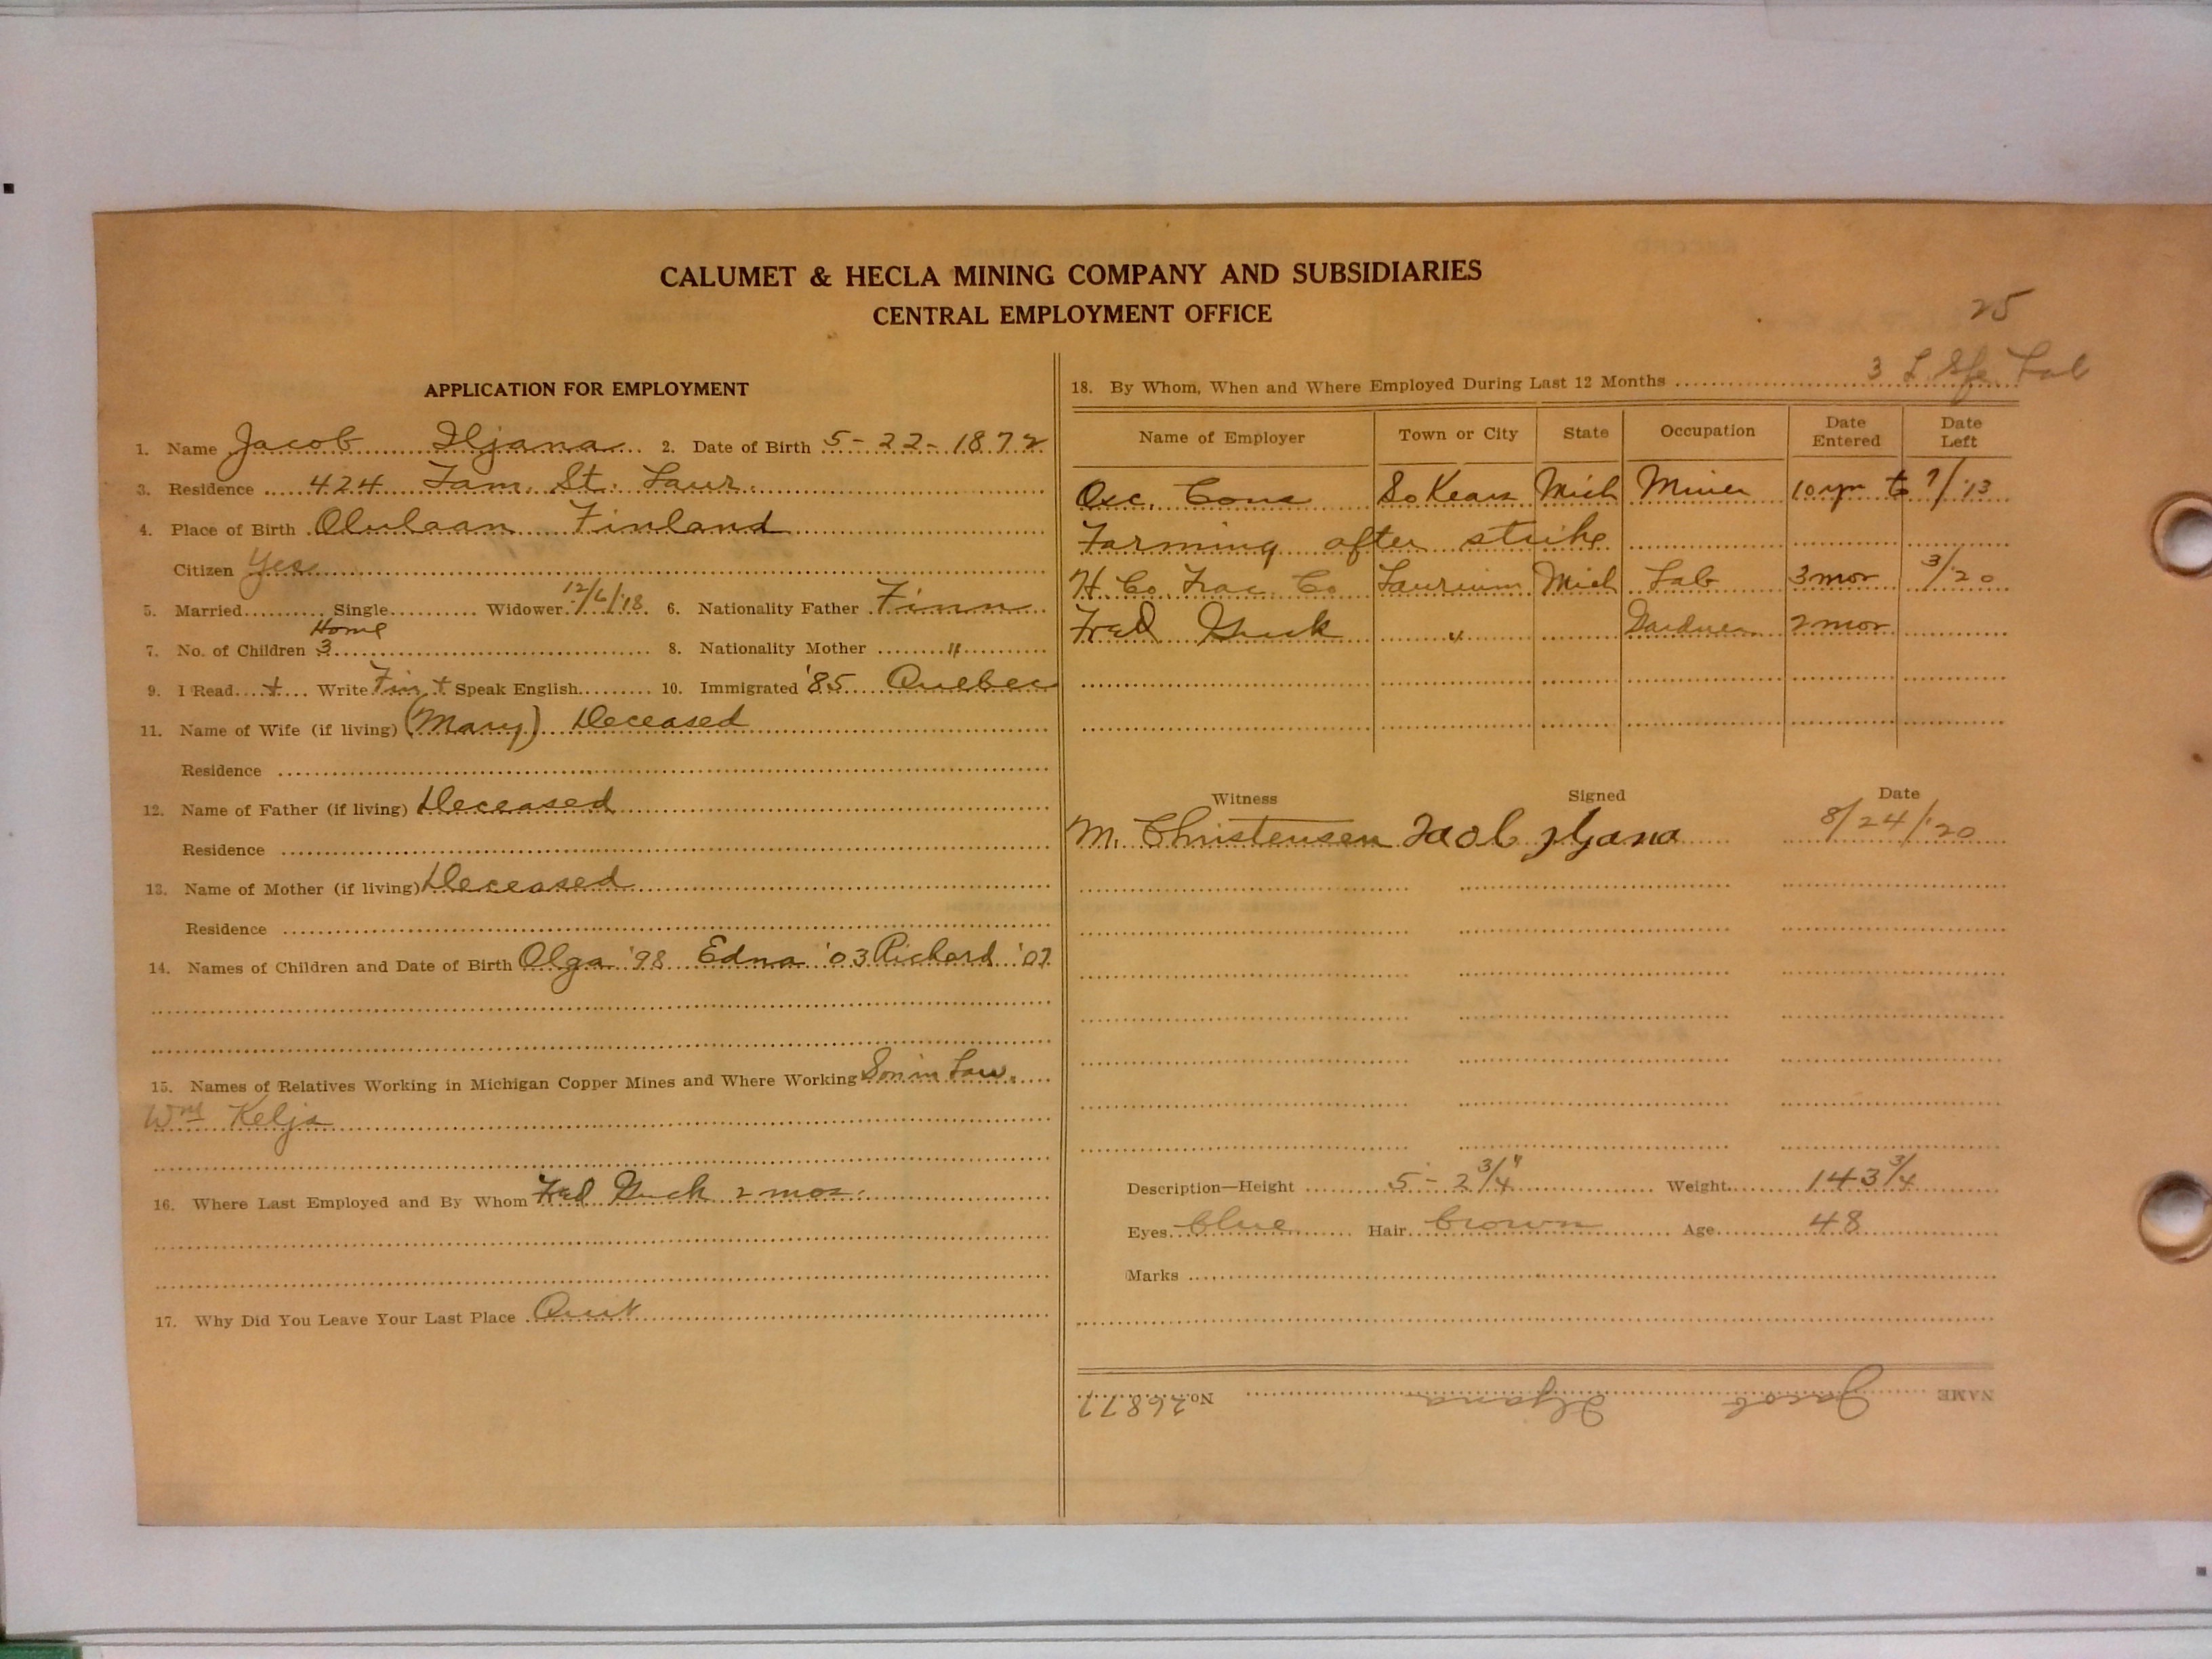 CALUMET & HECLA MINING COMPANY AND SUBSIDIARIES
CENTRAL EMPLOYMENT OFFICE
25
APPLICATION FOR EMPLOYMENT
1. Name Jacob Iljana 2. Date of Birth 5-22-1872
3. Residence 424 Tam. St. Laur.
4. Place of Birth Finland
Citizen Yes
5. Married Single Widower 12/6/18 6. Nationality Father Finn
Home
7. No. of Children 3 8. Nationality Mother "
9. I Read + Write Fin + Speak English 10. Immigrated '85 Quebec
11. Name of Wife (if living) (Mary) Deceased
Residence
12. Name of Father (if living) Deceased
Residence
13. Name of Mother (if living) Deceased
Residence
14. Names of Children and Date of Birth Olga '98 Edna '03 Richard '07
15. Names of Relatives Working in Michigan Copper Mines and Where Working Son in Law.
Wm Kelja
16. Where Last Employed and By Whom Fred Guck 2 mos.
17. Why Did You Leave Your Last Place Quit
18. By Whom, When and Where Employed During Last 12 Months 3 L. Lab
Name of Employer Town or City State Occupation Date Entered Date Left
Osc. Cons So Kears Mich Miner 10 yr to 7/'13
Farming after strike
H. Co. Trac. Co Laurium Mich Lab 3 mos 3/'20
Fred Guck " Gardner 2 mos
Witness Signed Date
M. Christensen Jacb Iljana 8/24/'20
Description—Height 5-2 3/4" Weight 143 3/4
Eyes blue Hair brown Age 48
Marks
NAME Jacob Iljana No. 26877